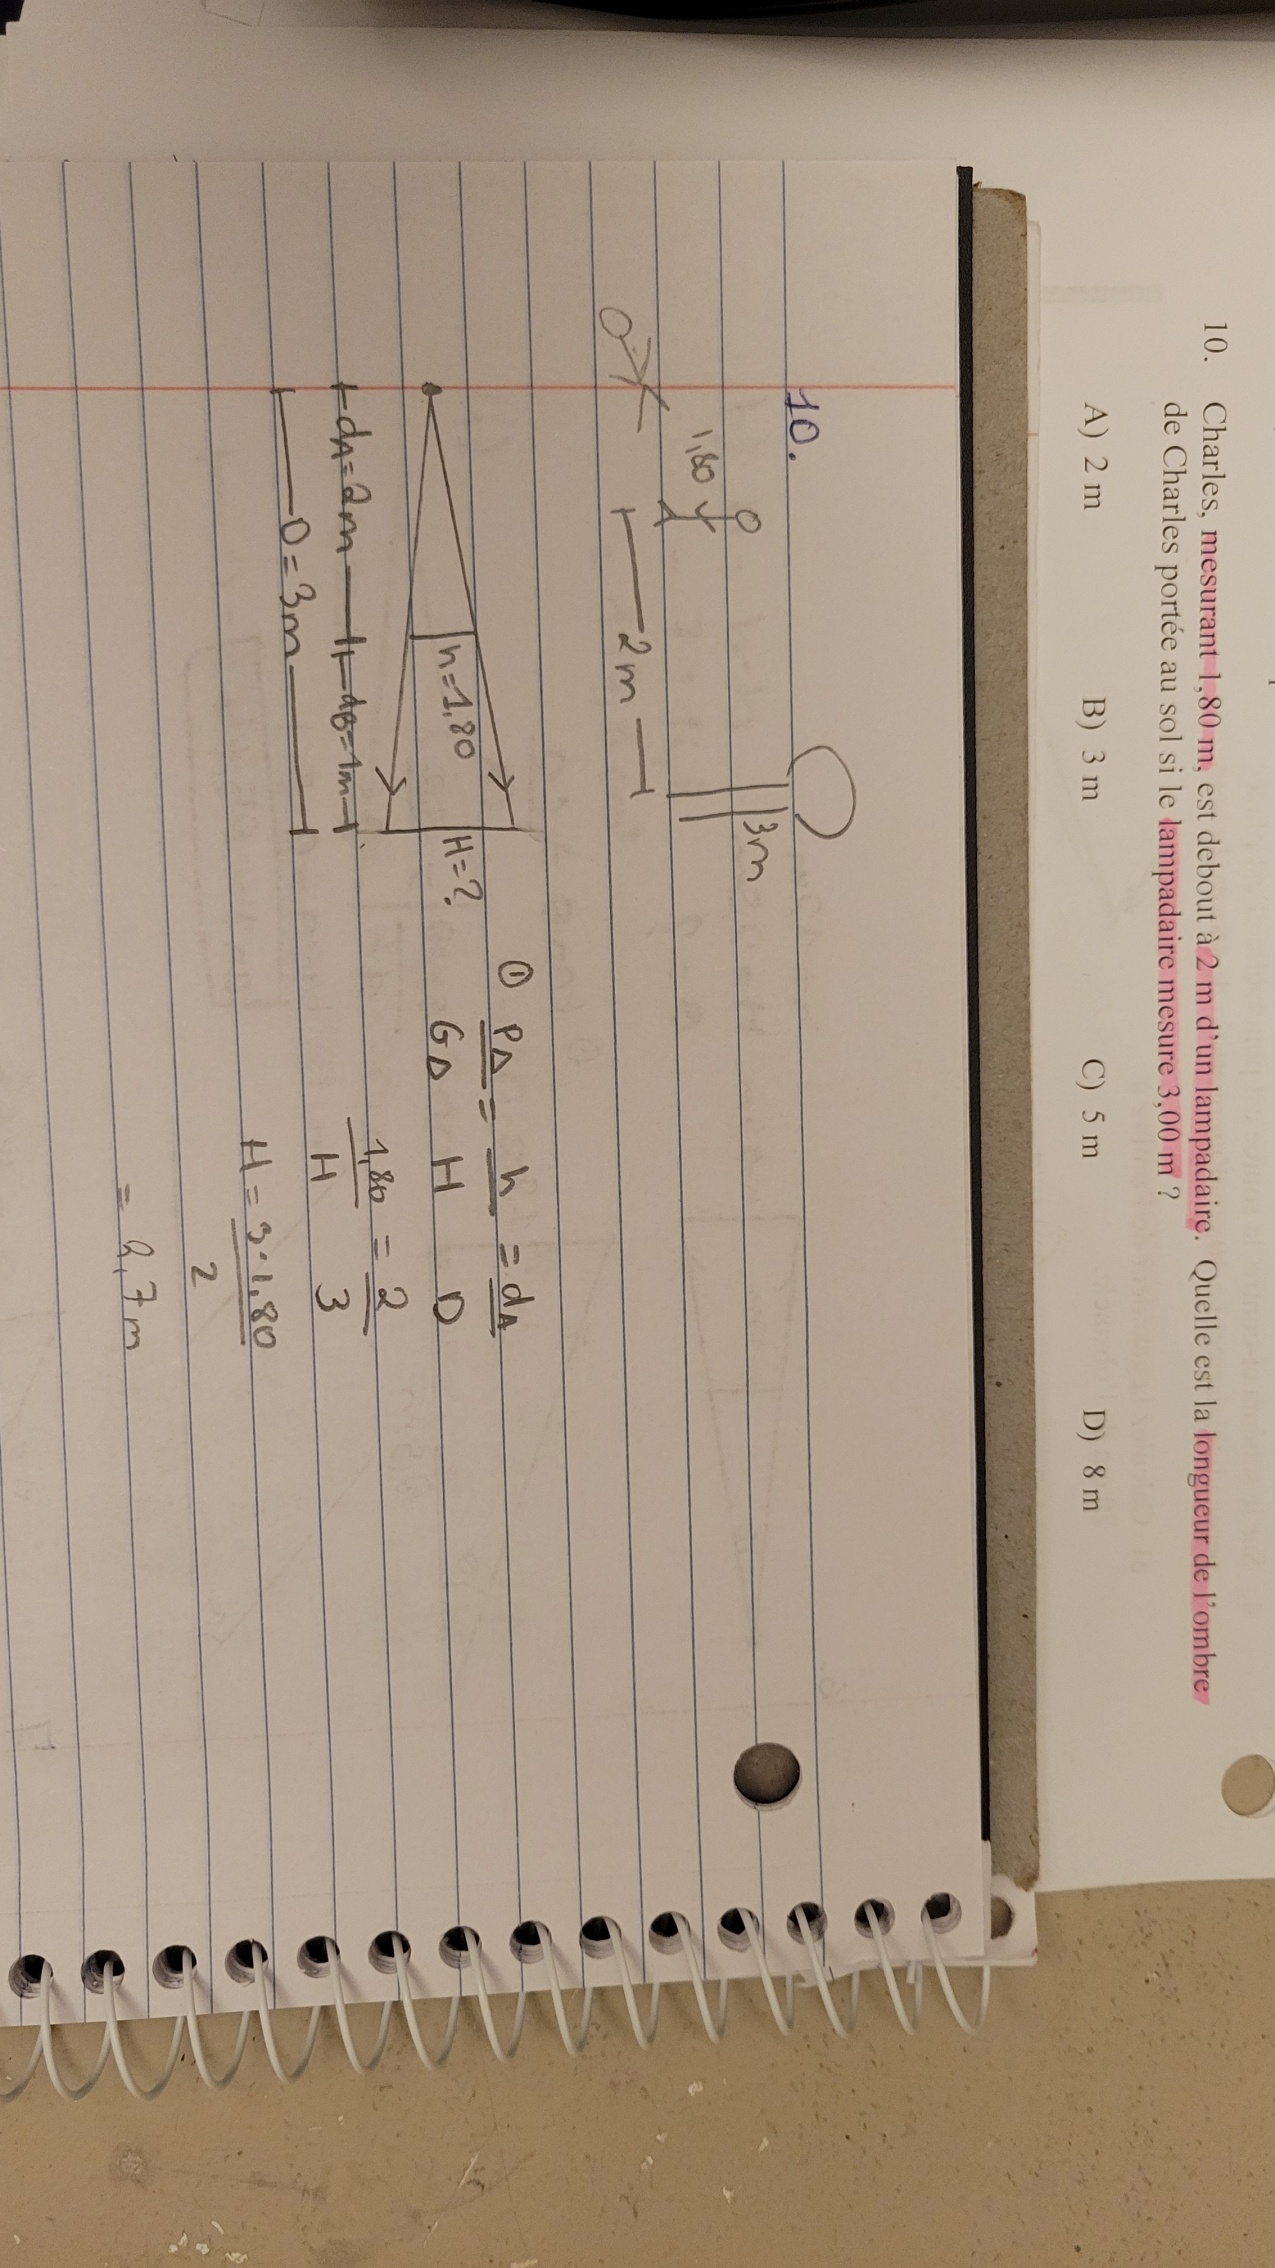 10. Charles, mesurant 1,80 m, est debout à 2 m d'un lampadaire. Quelle est la longueur de l'ombre
de Charles portée au sol si le lampadaire mesure 3,00 m ?
A) 2 m B) 3 m C) 5 m D) 8 m
10.
1,80
3m
2m
h=1,80
H=?
dA=2m
dB=1m
D=3m
① PΔ = h = dA
GΔ H D
1,80 = 2
H 3
H = 3·1,80
2
= 2,7m